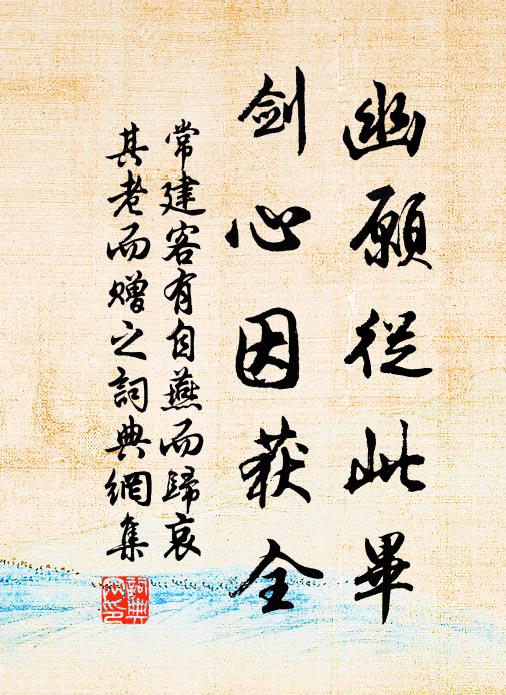 幽願從此畢
劍心因获全
常建客有自燕而歸哀
其老而赠之詞典網集